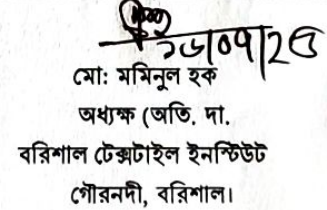 ২৬/০৭/২৫
মো: মমিনুল হক
অধ্যক্ষ (অতি. দা.
বরিশাল টেক্সটাইল ইনস্টিউট
গৌরনদী, বরিশাল।